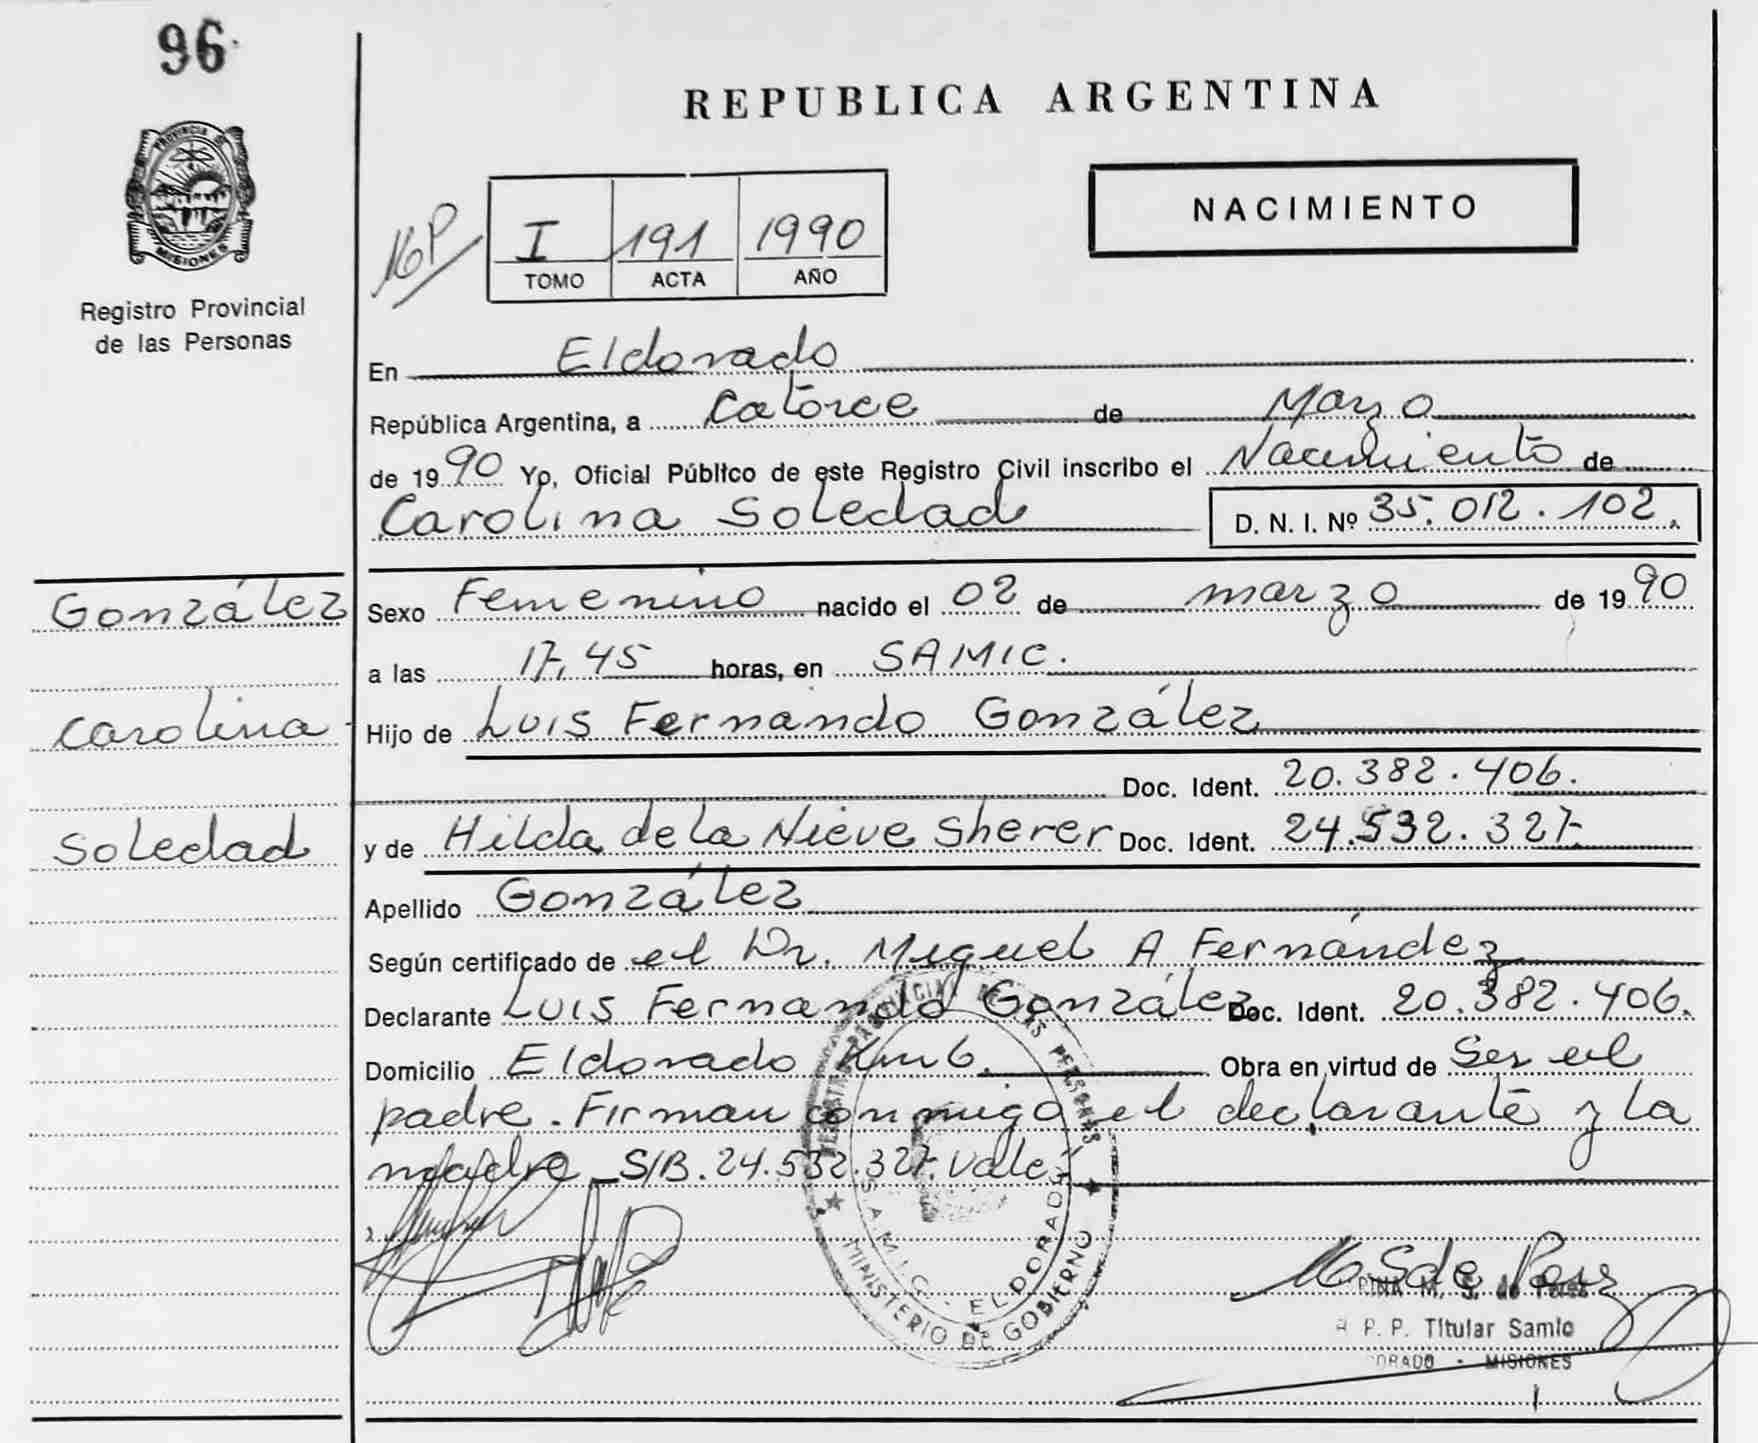 96
REPUBLICA ARGENTINA
PROVINCIA DE
MISIONES
Registro Provincial
de las Personas
I 191 1990
TOMO ACTA AÑO
NACIMIENTO
En Eldorado
República Argentina, a Catorce de Marzo
de 1990 Yo, Oficial Público de este Registro Civil inscribo el Nacimiento de
Carolina Soledad D. N. I. Nº 35.012.102.
González
Carolina
Soledad
Sexo Femenino nacido el 02 de marzo de 1990
a las 17,45 horas, en SAMIC.
Hijo de Luis Fernando González
Doc. Ident. 20.382.406.
y de Hilda de la Nieve Sherer Doc. Ident. 24.532.327.
Apellido González
Según certificado de el Dr. Miguel A Fernández
Declarante Luis Fernando González Doc. Ident. 20.382.406.
Domicilio Eldorado Km 6. Obra en virtud de Ser el
padre. Firman conmigo el declarante y la
madre_S/B.24.532.327.Vale.
REGISTRO PROVINCIAL DE LAS PERSONAS
S.A.M.I.C. - ELDORADO
MINISTERIO DE GOBIERNO
M S de Perez
M. S. de Perez
P. P. Titular Samic
DORADO - MISIONES